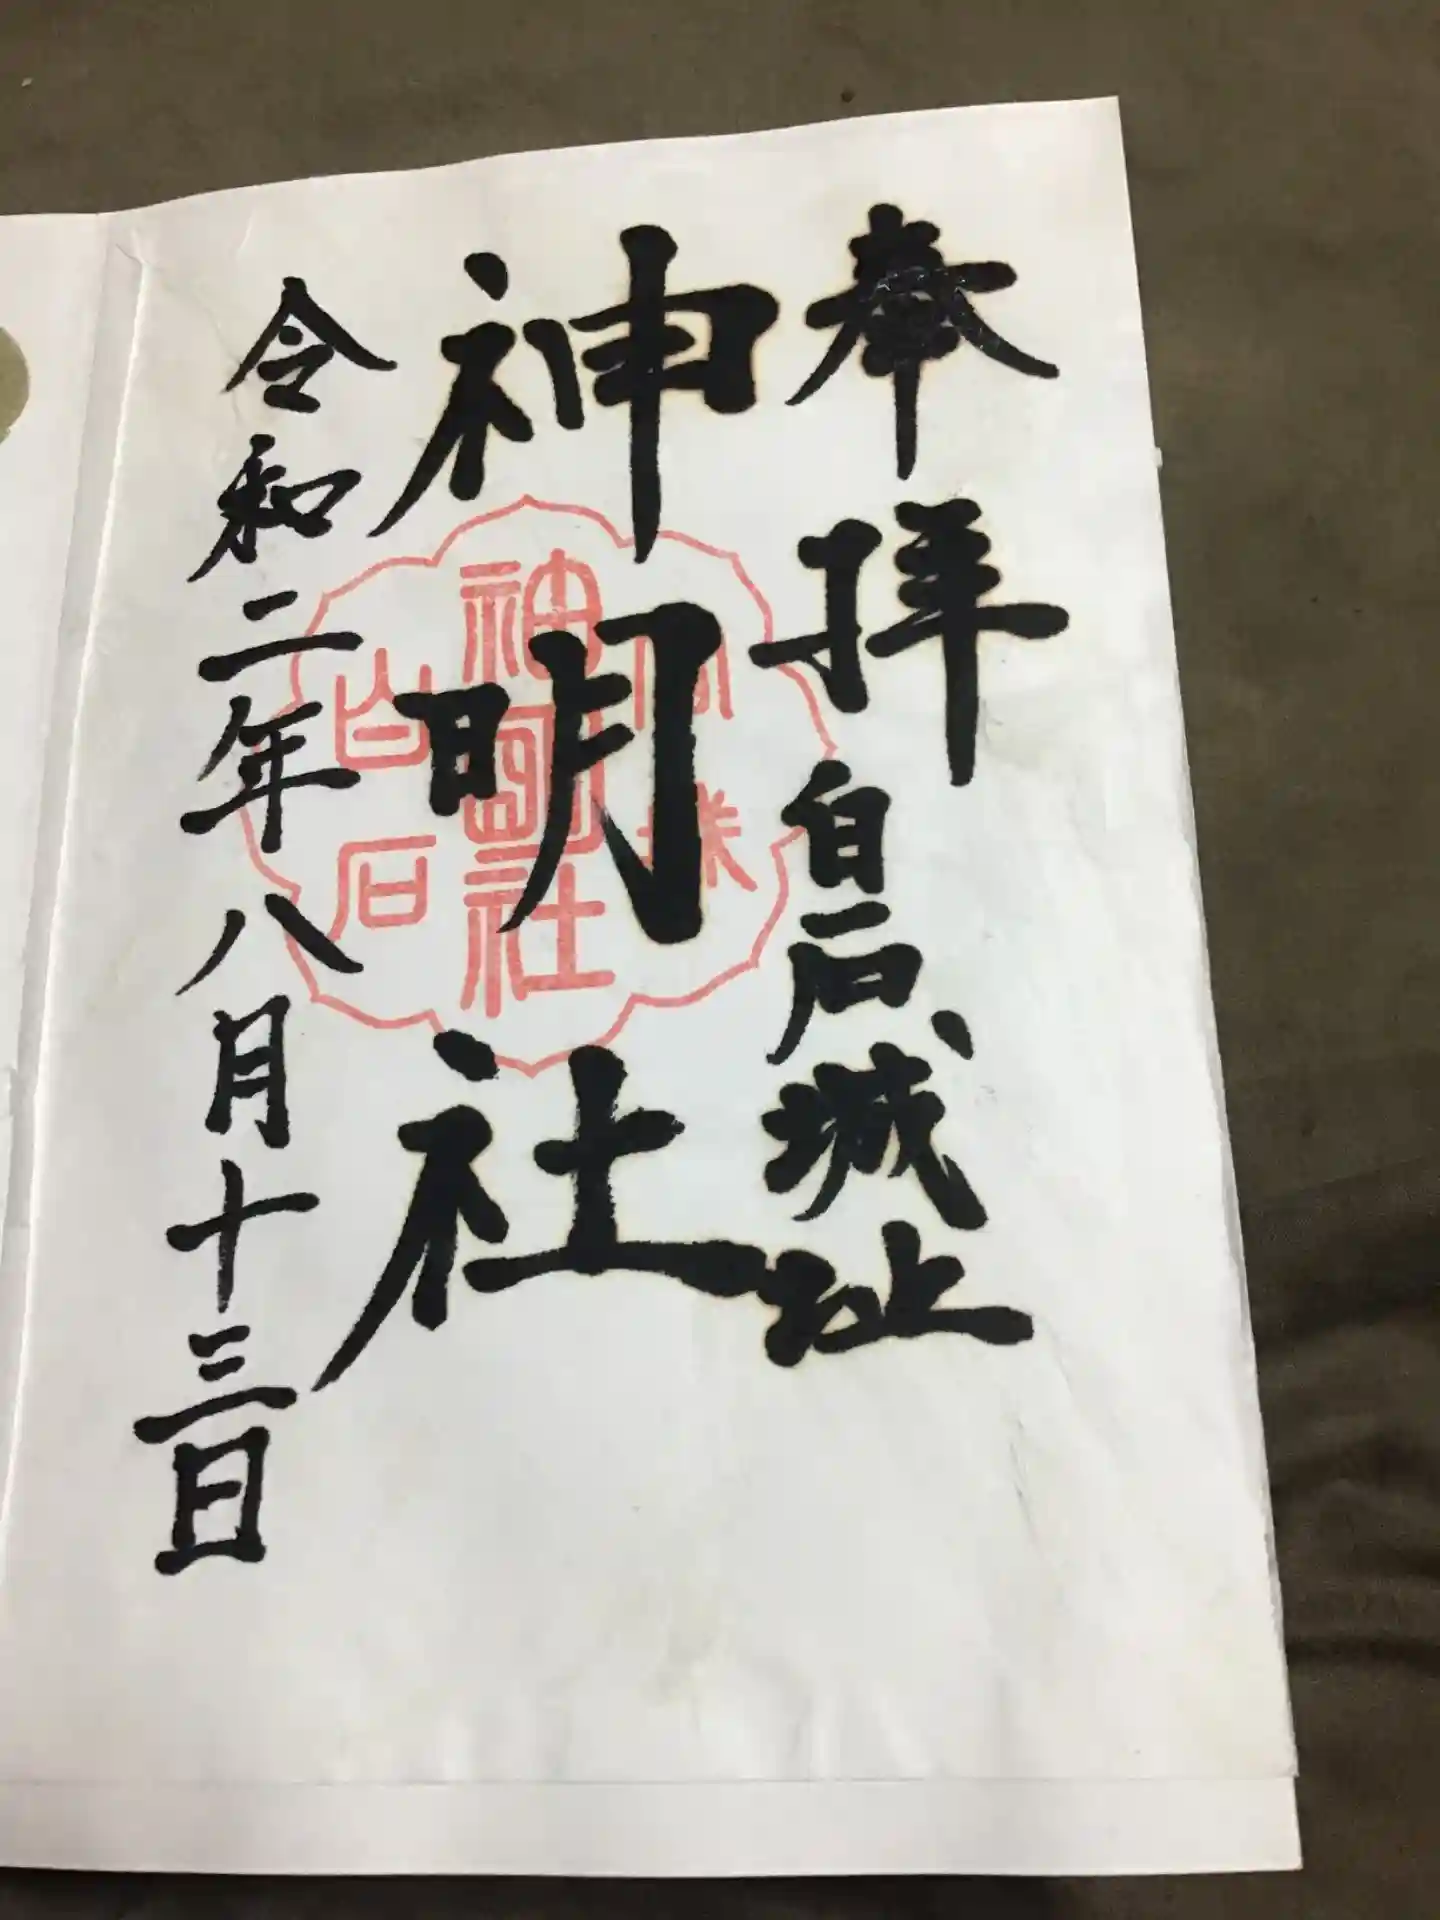 奉拝 白石城址
神明社
令和二年八月十三日
神明社
白石